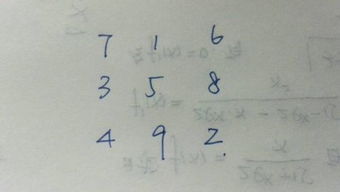 7 1 6
3 5 8
4 9 2.